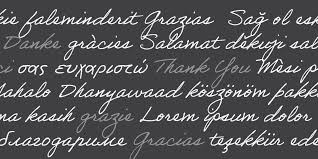 kie faleminderit Grazias Sağ ol esk
Danke gràcies Salamat děkuji sal
ci σας ευχαριστώ Thank You Mèsi p
Mahalo Dhanyawaad köszönöm pakk
na kasih grazie Lorem ipsum dolor
благодариме Gracias teşekkür ede